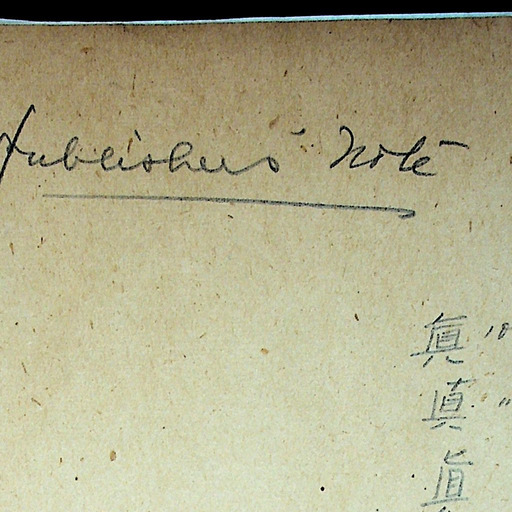 Publishers' Note
眞 10
眞 "
眞